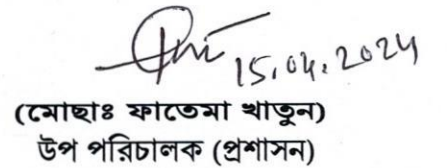 15.04.2024
(মোছাঃ ফাতেমা খাতুন)
উপ পরিচালক (প্রশাসন)